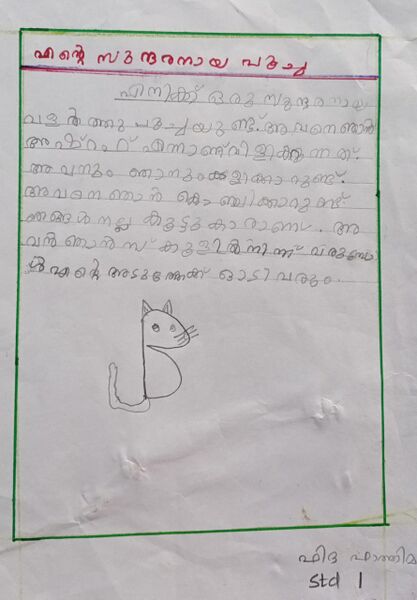 എന്റെ സുന്ദരനായ പൂച്ച
എനിക്ക് ഒരു സുന്ദരനായ
വളർത്തു പൂച്ചയുണ്ട്. അവനെ ഞാൻ
എന്നാണ് വിളിക്കുന്നത്.
അവനും ഞാനും കളിക്കാറുണ്ട്.
അവനെ ഞാൻ കൊഞ്ചിക്കാറുണ്ട്
ഞങ്ങൾ നല്ല കൂട്ടുകാരാണ്. അ
വൻ ഞാൻ സ്കൂളിൽ നിന്ന് വരുമ്പോ
ൾ എന്റെ അടുത്തേക്ക് ഓടി വരും.
ഫിദ ഫാത്തിമ
Std 1